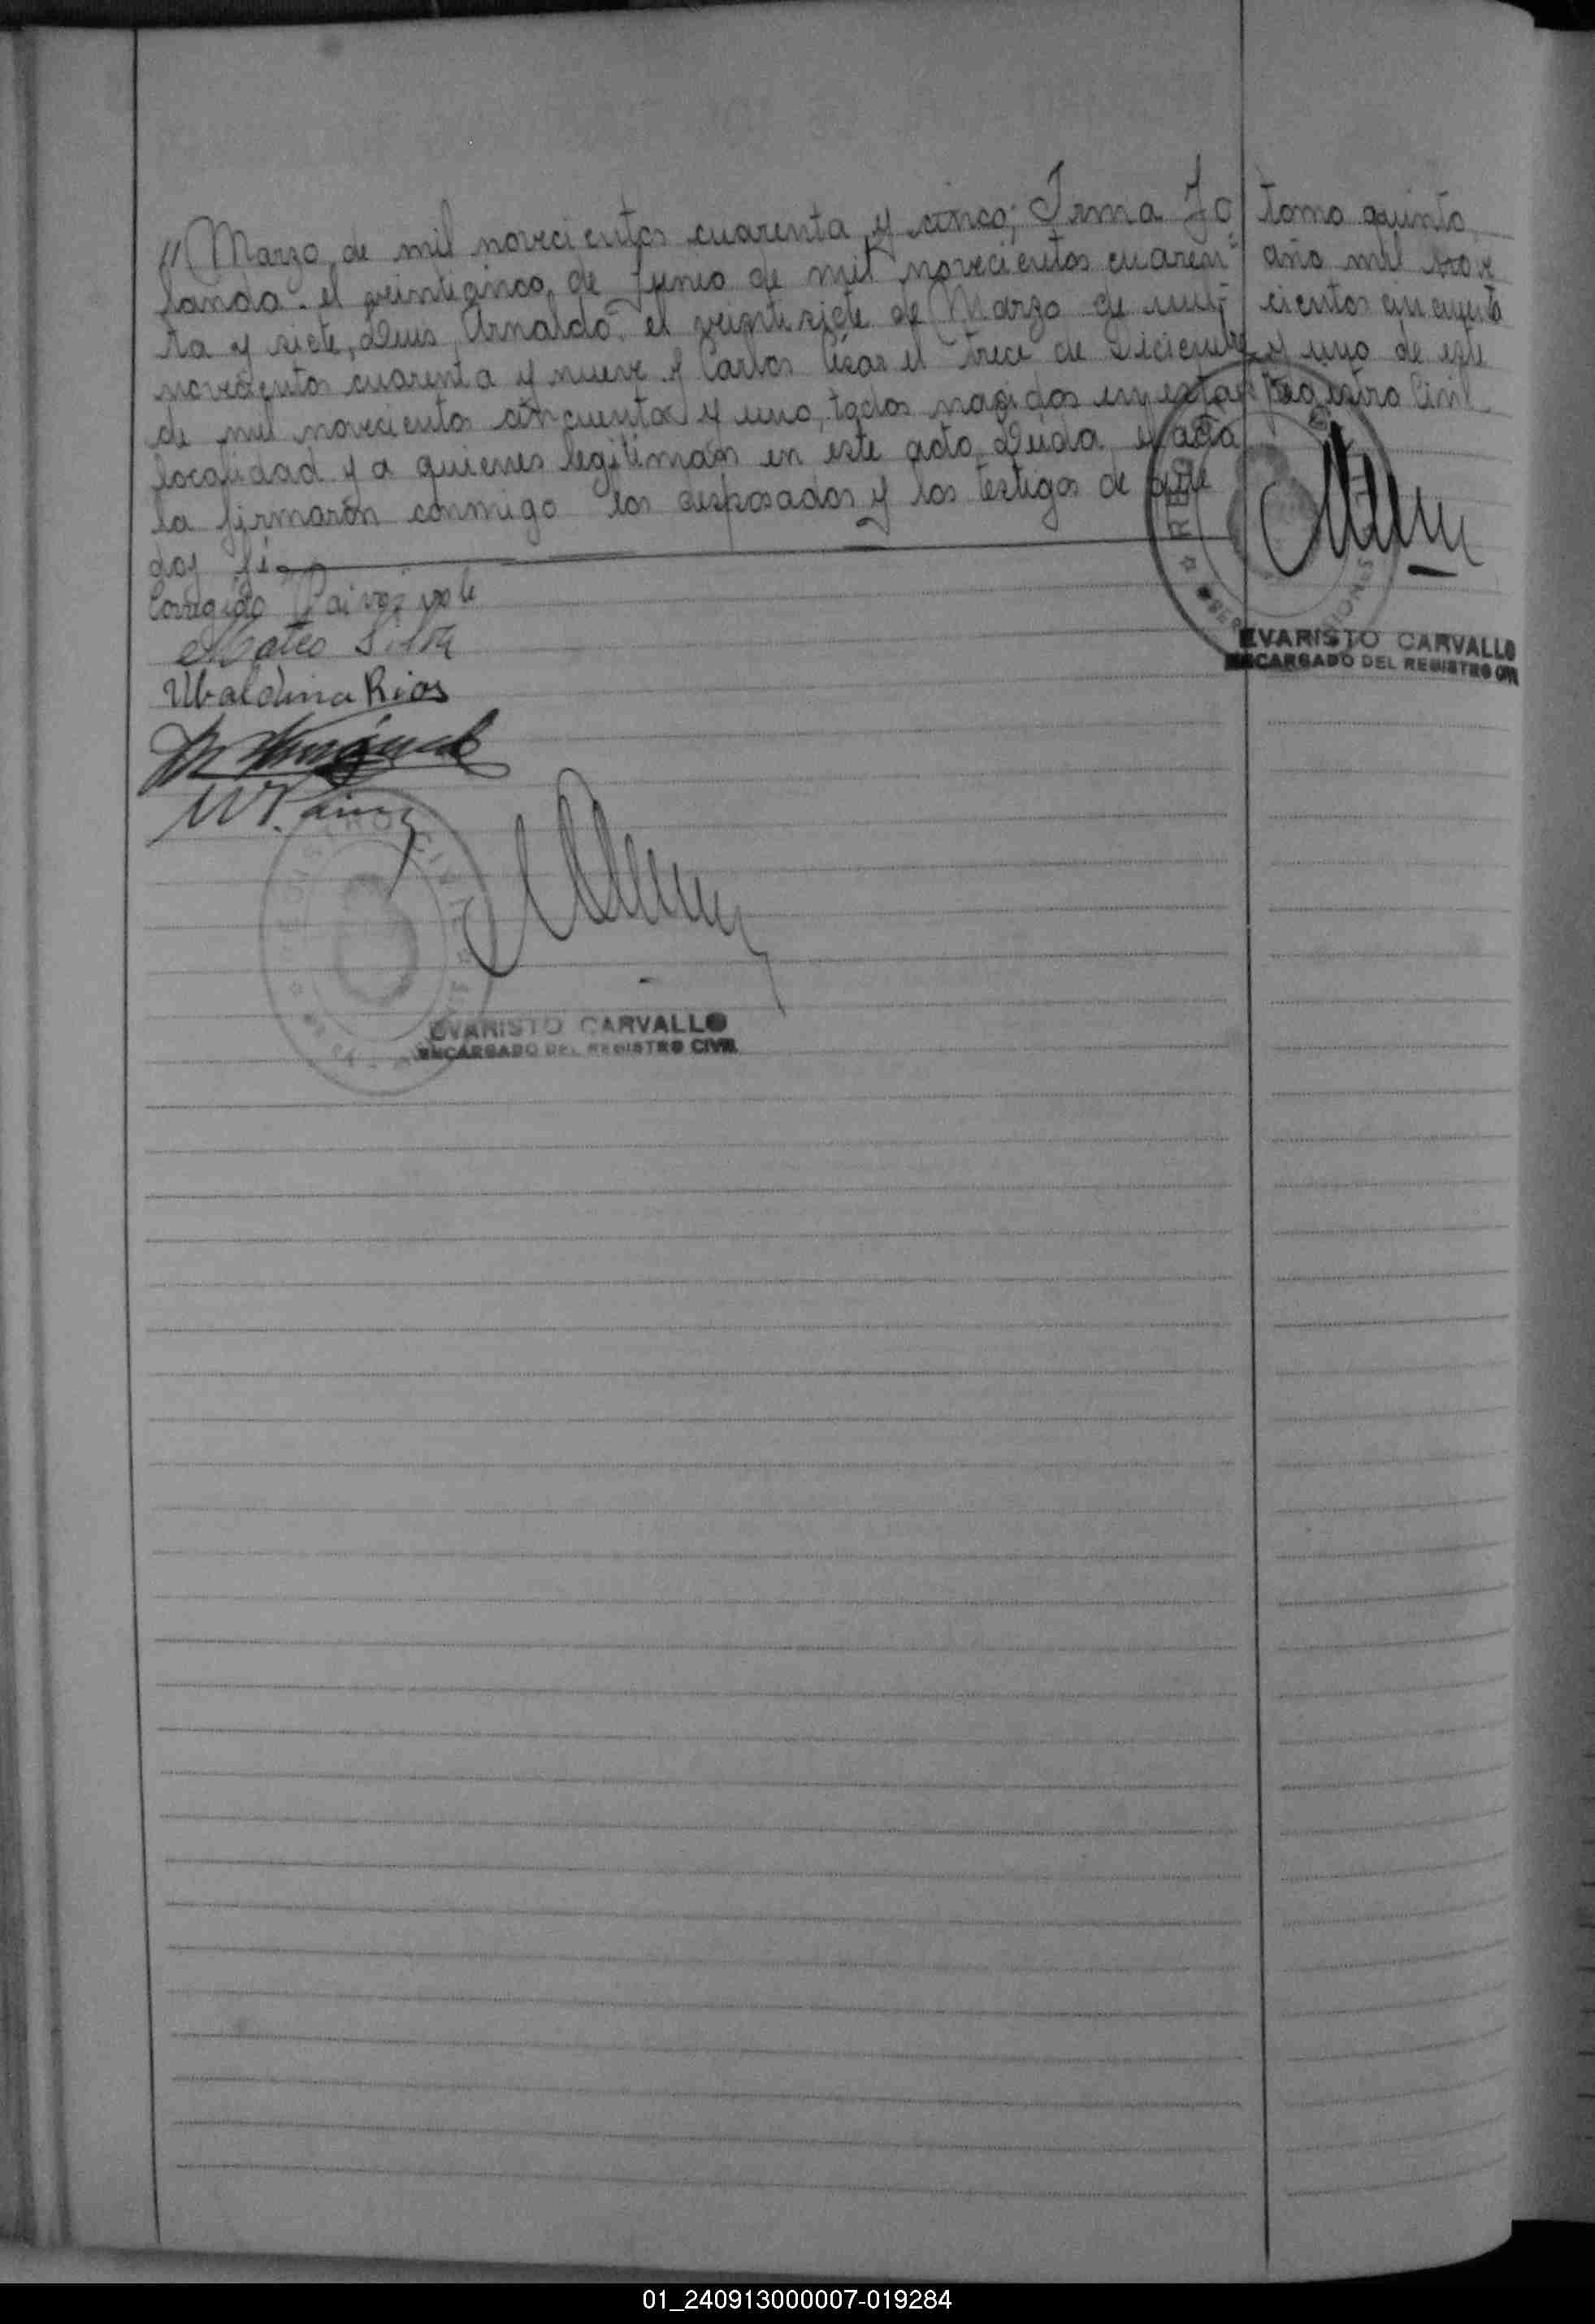 " Marzo de mil novecientos cuarenta y cinco; Irma Jo
landa. el veinticinco de Junio de mil novecientos cuaren
ta y siete, Luis Arnaldo. el veintisiete de Marzo de mil
novecientos cuarenta y nueve y Carlos César el trece de Diciembre
de mil novecientos cincuenta y uno, todos nacidos en esta
localidad y a quienes legitiman en este acto. Leida el acta
la firmaron conmigo los desposados y los testigos de que
doy fé
Corregido vale
Mateo
Ubaldina Rios
tomo quinto,
año mil nove
cientos cincuenta
y uno de este
Registro Civil
EVARISTO CARVALLO
ENCARGADO DEL REGISTRO CIVIL
REGISTRO CIVIL
EVARISTO CARVALLO
ENCARGADO DEL REGISTRO CIVIL
01_240913000007-019284